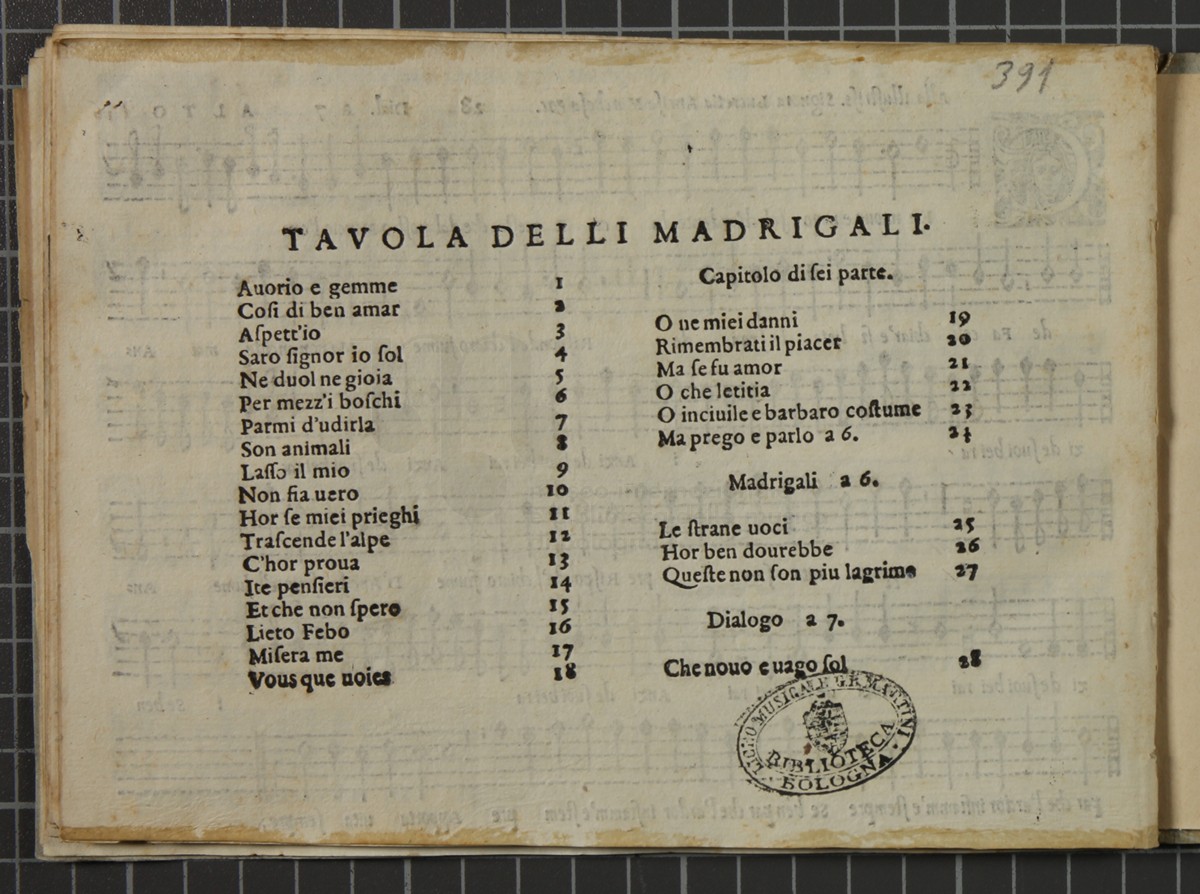 391
TAVOLA DELLI MADRIGALI.
Auorio e gemme 1
Coſi di ben amar 2
Aſpett'io 3
Saro ſignor io ſol 4
Ne duol ne gioia 5
Per mezz'i boſchi 6
Parmi d'udirla 7
Son animali 8
Laſſo il mio 9
Non fia uero 10
Hor ſe miei prieghi 11
Traſcende l'alpe 12
C'hor proua 13
Ite penſieri 14
Et che non ſpero 15
Lieto Febo 16
Miſera me 17
Vous que uoies 18
Capitolo di ſei parte.
O ne miei danni 19
Rimembrati il piacer 20
Ma ſe fu amor 21
O che letitia 22
O inciuile e barbaro coſtume 23
Ma prego e parlo a 6. 24
Madrigali a 6.
Le ſtrane uoci 25
Hor ben dourebbe 26
Queſte non ſon piu lagrime 27
Dialogo a 7.
Che nouo e uago ſol 28
LICEO MUSICALE G.B. MARTINI
BIBLIOTECA
BOLOGNA